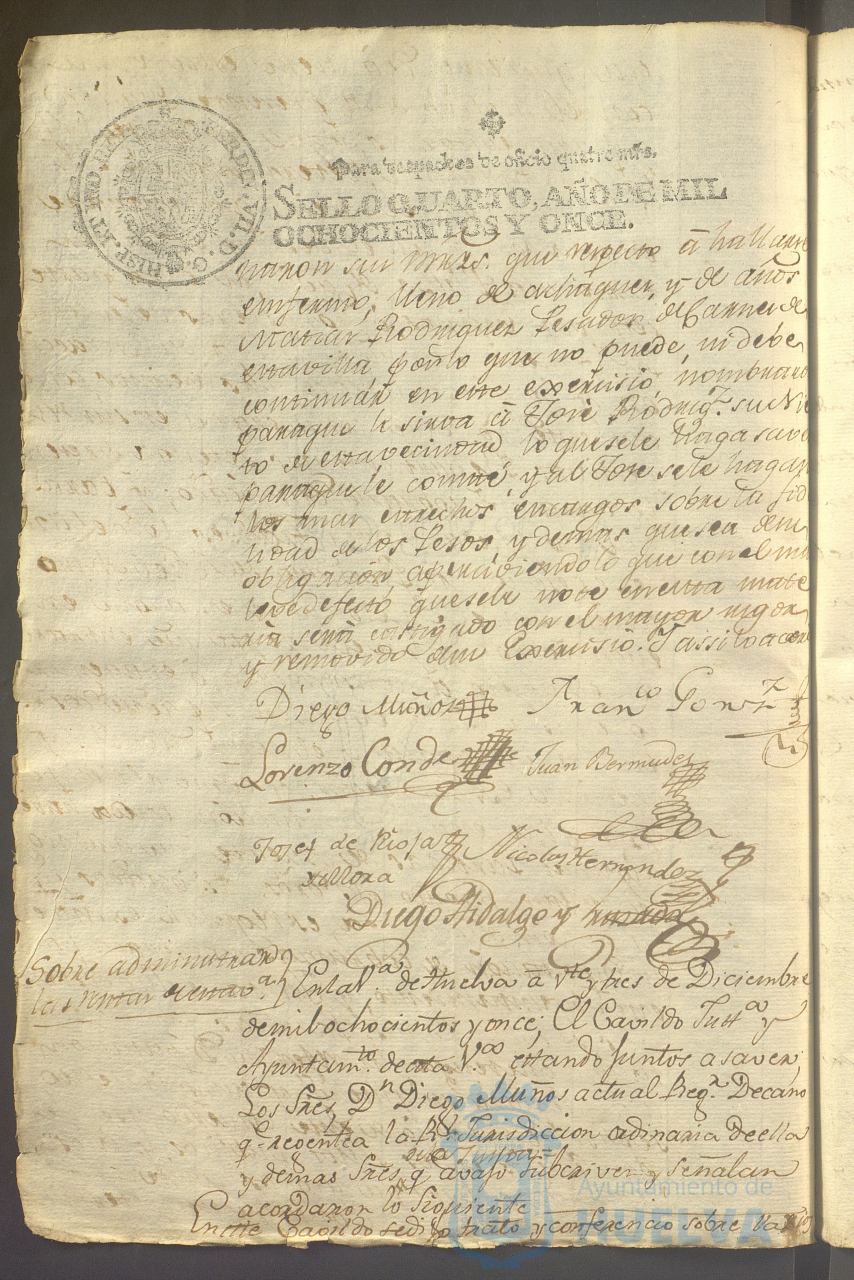 Para despachos de oficio quatro mrs.
SELLO QUARTO, AÑO DE MIL
OCHOCIENTOS Y ONCE.
HISP. ET IND. R. FERD. VII. D. G.
naron sus mrzs. que respecto â hallarse
enfermo, lleno de achaques, y de años
Matias Rodriguez Pesador de Carnes de
esta villa por lo que no puede, ni debe
continuar en este exersisio, nombraron
para que le sirva â Jose Rodrigz. su Nie
to de esta vecindad lo que se le haga saver
para que le conste, y al Jose se le hagan
los mas estrechos encargos sobre la fide
lidad de los Pesos, y demas que sea de su
obligacion apersiviendolo que con el mas
leve defecto que se le note en esta mate
ria será castigado con el mayor rigor
y removido de su Exersisio. Y assi lo acor
Diego Muñoz Franco Gonsz
Lorenzo Conde Juan Bermudez
Josef de Rioja Nicolas Hernandez
y Mora
Diego Hidalgo y
Sobre administrarse
las rentas de esta va.
En la Va. de Huelva â vte y tres de Diciembre
de mil ochocientos y once; El Cavildo Justa y
Ayuntamto. de esta Va. estando juntos a saver;
Los Sres. Dn Diego Muños actual Regr. Decano
q. regentea la Rl Jurisdiccion ordinaria de ella
y demas Sres q avajo subcriven y señalan
acordaron lo siguiente
En este Cavildo se dijo trato y conferencio sobre
Ayuntamiento de
HUELVA